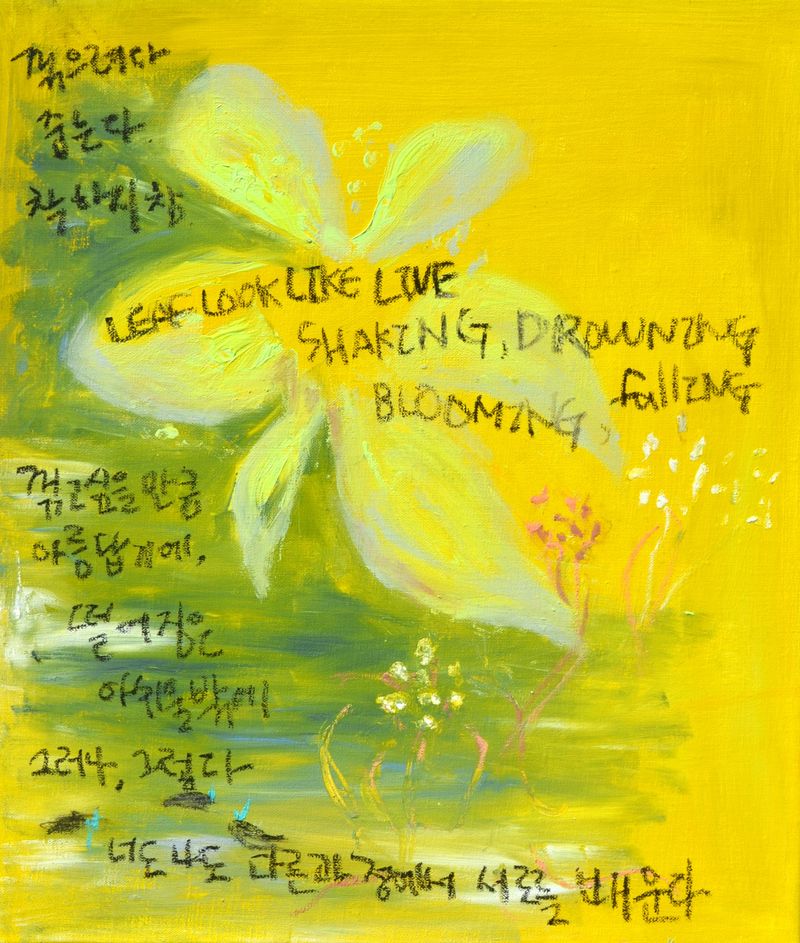 꺾으려다
줍는다.
착하지 참
LEAF LOOK LIKE LIVE
SHAKING, DROWNING
BLOOMING, fallING
꺾고싶을만큼
아름답기에,
떨어짐은
아쉬울밖에
그러나, 그렇다
너도 나도 다른과정에서 서로를 배운다